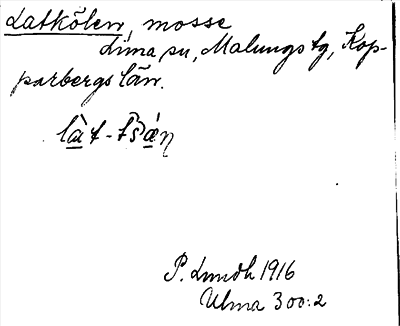 Latkölen, mosse
Lima sn, Malungs tg, Kop-
parbergs län.
P. Lundh 1916
Ulma 300:2